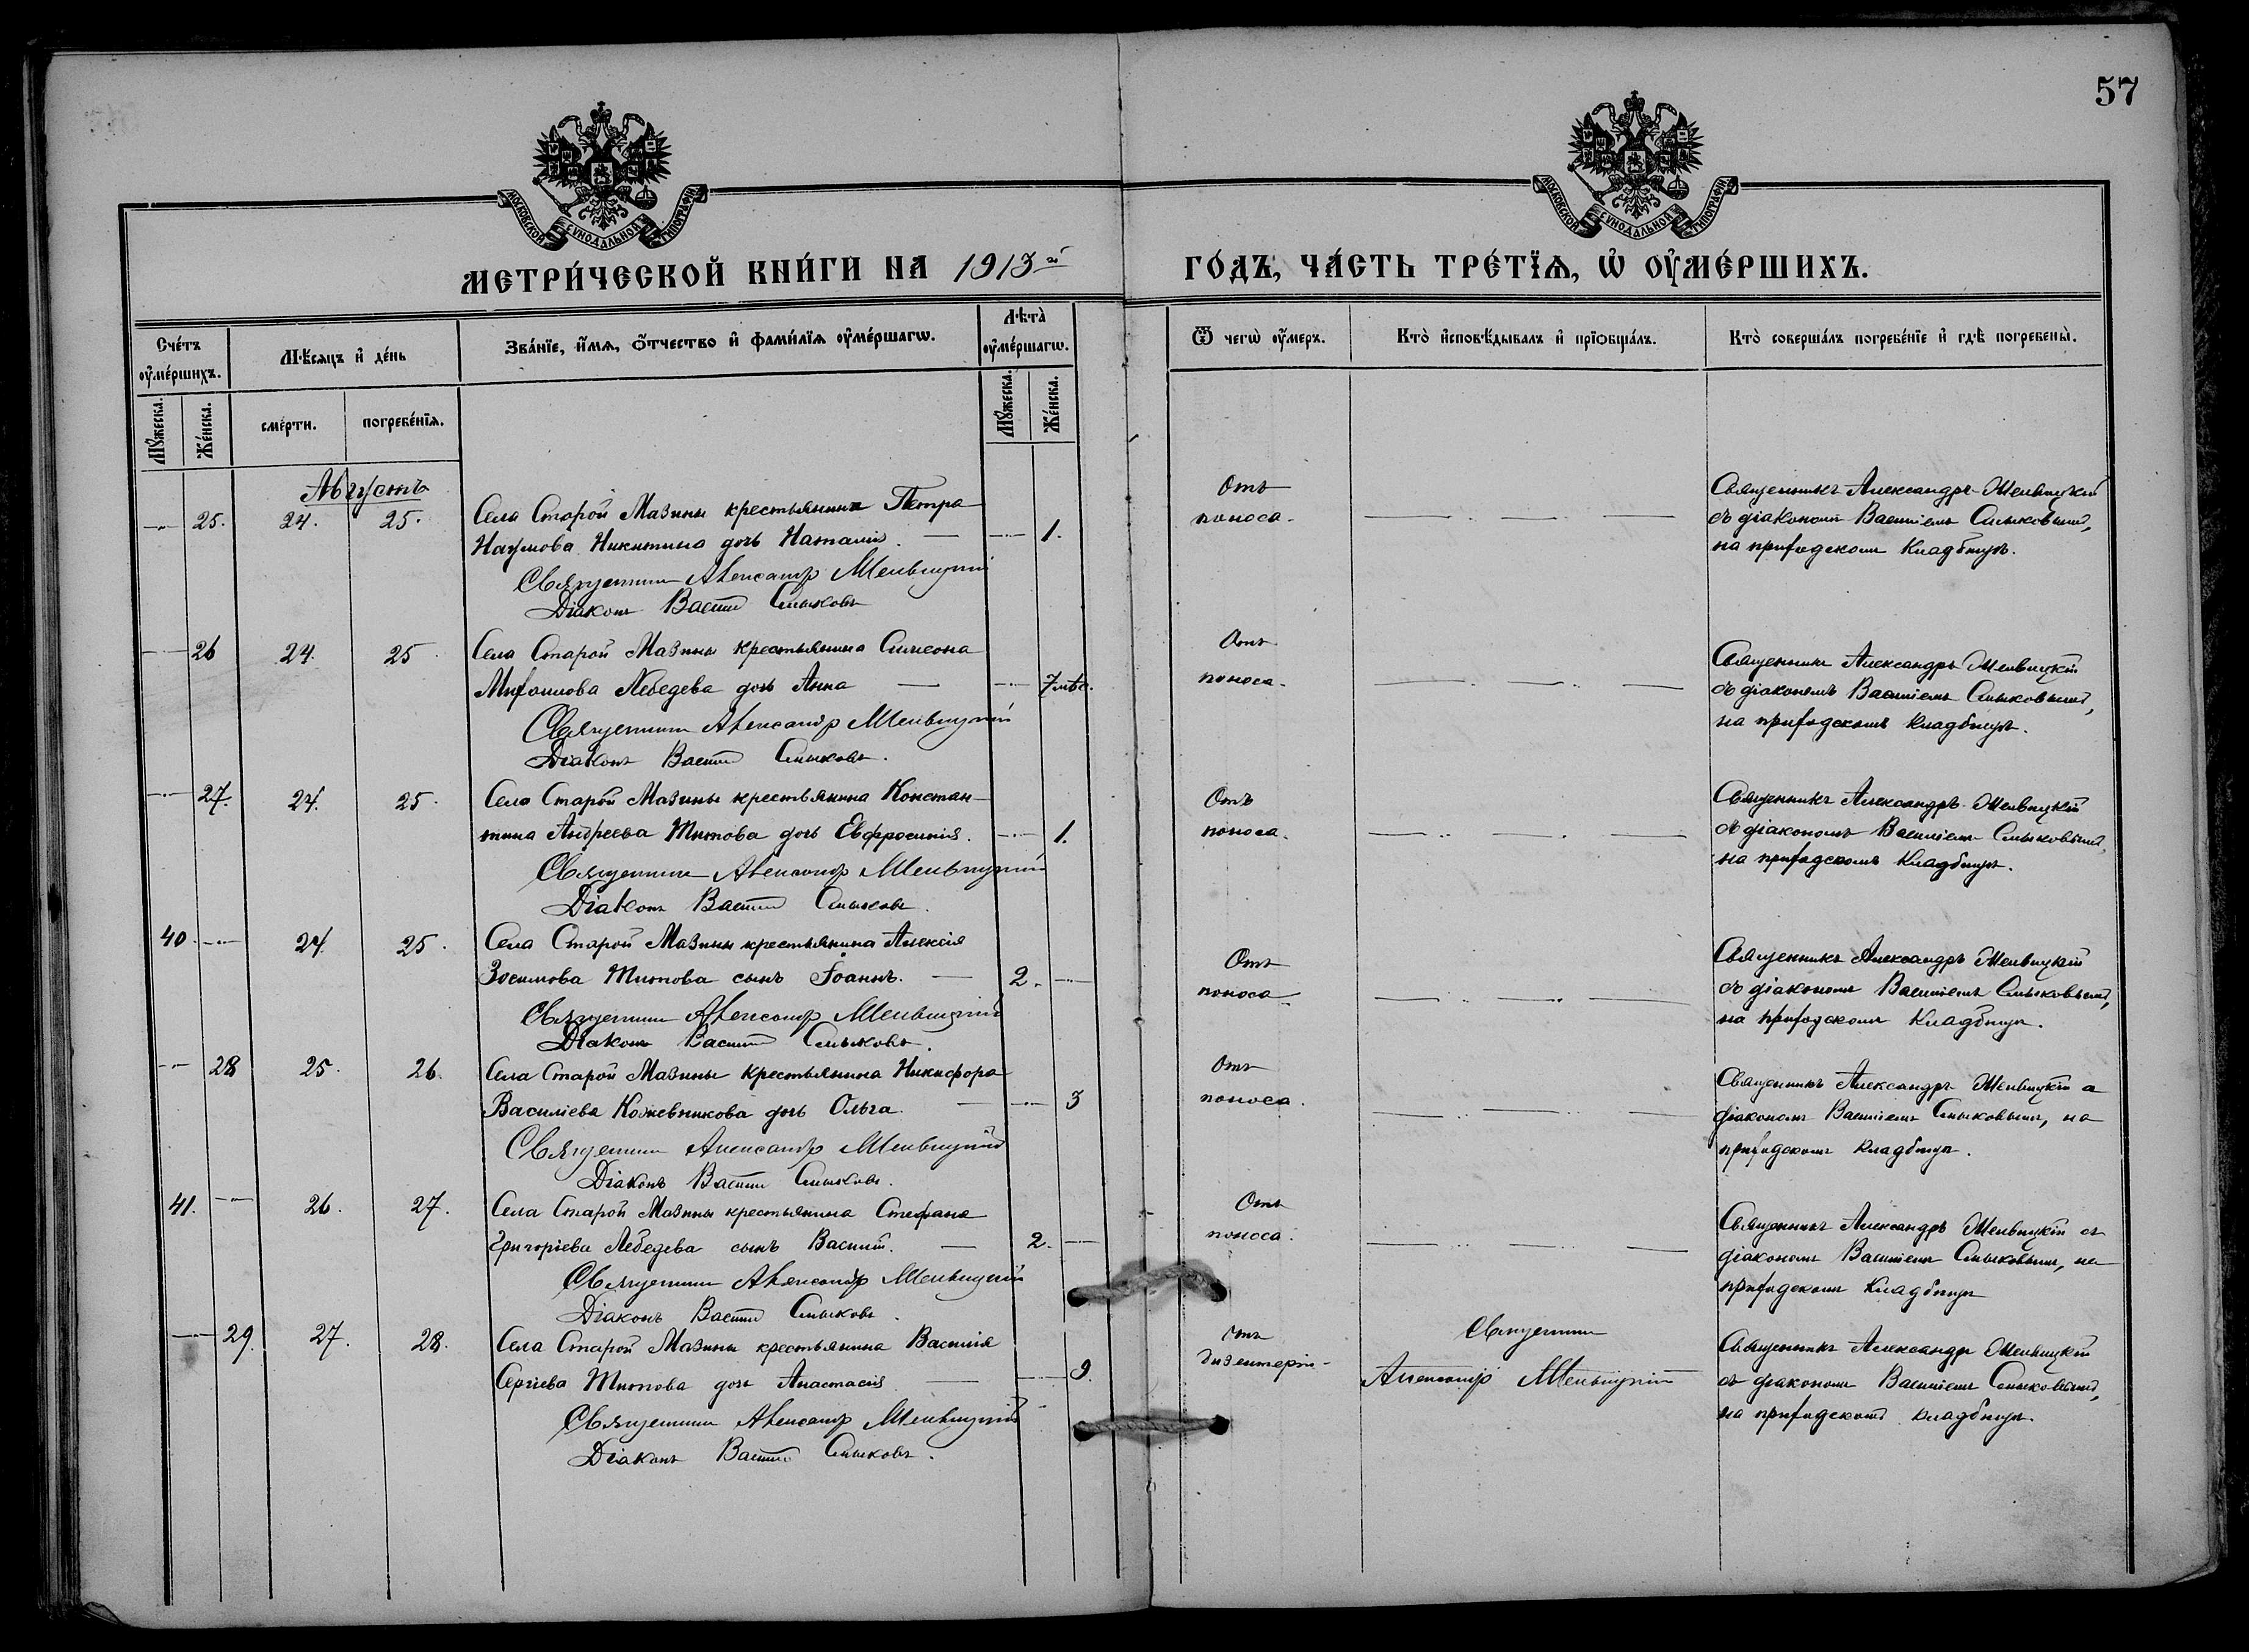 57
МОСКОВСКОЙ СУНОДАЛЬНОЙ ТИПОГРАФІИ
МОСКОВСКОЙ СУНОДАЛЬНОЙ ТИПОГРАФІИ
МЕТРИ́ЧЕСКОЙ КНИ́ГИ НА 1913й
ГО́ДЪ, ЧА́СТЬ ТРЕ́ТЇѦ, Ѡ҆ ОУ҆МЕ́РШИХЪ.
Сче́тъ оу҆ме́ршихъ.
Мѣ́сѧцъ и҆ де́нь
Зва́нїе, и҆́мѧ, ѻ҆́тчество и҆ фами́лїѧ оу҆ме́ршагѡ.
Лѣта̀ оу҆ме́ршагѡ.
Ѿ чегѡ̀ оу҆́меръ.
Кто̀ и҆сповѣ́дывалъ и҆ прїѡбща́лъ.
Кто̀ соверша́лъ погребе́нїе и҆ гдѣ̀ погребены̀.
Мꙋ́жеска.
Же́нска.
сме́рти.
погребе́нїѧ.
Мꙋ́жеска.
Же́нска.
Августъ
25. 24. 25. Села Старой Мазины крестьянина Петра
Наумова Никитина дочь Наталія. — 1.
Священникъ Александр Мельвицкій
Діаконъ Василій Смыковъ
Отъ
поноса.
Священникъ Александръ Мельвицкій
съ діакономъ Василіемъ Смыковымъ,
на приходскомъ кладбищѣ.
26 24. 25. Села Старой Мазины крестьянина Симеона
Михаилова Лебедева дочь Анна — 7 мѣс.
Священникъ Александр Мельвицкій
Діаконъ Василій Смыковъ.
Отъ
поноса.
Священникъ Александръ Мельвицкій
съ діакономъ Василіемъ Смыковымъ,
на приходскомъ кладбищѣ.
27. 24. 25. Села Старой Мазины крестьянина Констан-
тина Андреева Титова дочь Евфросинія. 1.
Священникъ Александр Мельвицкій
Діаконъ Василій Смыковъ.
Отъ
поноса.
Священникъ Александръ Мельвицкій
съ діакономъ Василіемъ Смыковымъ,
на приходскомъ кладбищѣ.
40. 24. 25. Села Старой Мазины крестьянина Алексія
Зосимова Титова сынъ Іоаннъ. — 2.
Священникъ Александр Мельвицкій
Діаконъ Василій Смыковъ.
Отъ
поноса.
Священникъ Александръ Мельвицкій
съ діакономъ Василіемъ Смыковымъ,
на приходскомъ кладбищѣ.
28 25. 26. Села Старой Мазины крестьянина Никифора
Василіева Кожевникова дочь Ольга. — 3
Священникъ Александр Мельвицкій
Діаконъ Василій Смыковъ.
Отъ
поноса.
Священникъ Александръ Мельвицкій съ
діакономъ Василіемъ Смыковымъ, на
приходскомъ кладбищѣ.
41. 26. 27. Села Старой Мазины крестьянина Стефана
Григоріева Лебедева сынъ Василій. — 2.
Священникъ Александр Мельвицкій
Діаконъ Василій Смыковъ.
Отъ
поноса.
Священникъ Александръ Мельвицкій съ
діакономъ Василіемъ Смыковымъ, на
приходскомъ кладбищѣ
29. 27. 28. Села Старой Мазины крестьянина Василія
Сергіева Титова дочь Анастасія — 9.
Священникъ Александр Мельвицкій
Діаконъ Василій Смыковъ.
Отъ
дизентеріи
Священникъ
Александр Мельвицкій
Священникъ Александръ Мельвицкій
съ діакономъ Василіемъ Смыковымъ,
на приходскомъ кладбищѣ.